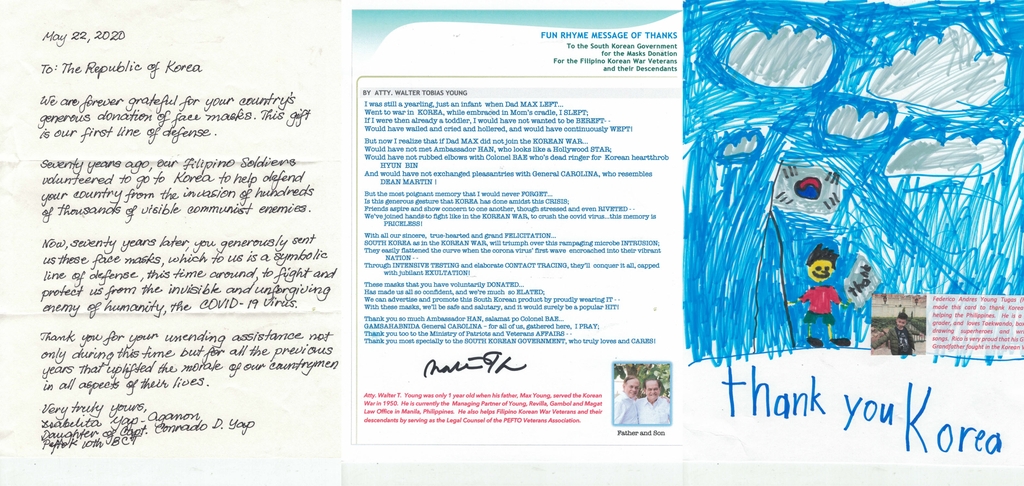 May 22, 2020
To: The Republic of Korea
We are forever grateful for your country's
generous donation of face masks. This gift
is our first line of defense.
Seventy years ago, our Filipino Soldiers
volunteered to go to Korea to help defend
your country from the invasion of hundreds
of thousands of visible communist enemies.
Now, seventy years later you generously sent
us these face masks, which to us is a symbolic
line of defense, this time around, to fight and
protect us from the invisible and unforgiving
enemy of humanity, the COVID-19 Virus.
Thank you for your unending assistance not
only during this time but for all the previous
years that uplifted the morale of our countrymen
in all aspects of their lives.
Very truly yours,
Isabelita Yap-Aganon
Daughter of Capt. Conrado D. Yap
Peftok 10th BCT
FUN RHYME MESSAGE OF THANKS
To the South Korean Government
for the Masks Donation
For the Filipino Korean War Veterans
and their Descendants
BY ATTY. WALTER TOBIAS YOUNG
I was still a yearling, just an infant when Dad MAX LEFT...
Went to war in KOREA, while embraced in Mom's cradle, I SLEPT;
If I were then already a toddler, I would have not wanted to be BEREFT--
Would have wailed and cried and hollered, and would have continuously WEPT!
But now I realize that if Dad MAX did not join the KOREAN WAR...
Would have not met Ambassador HAN, who looks like a Hollywood STAR;
Would have not rubbed elbows with Colonel BAE who's dead ringer for Korean heartthrob
HYUN BIN
And would have not exchanged pleasantries with General CAROLINA, who resembles
DEAN MARTIN !
But the most poignant memory that I would never FORGET...
Is this generous gesture that KOREA has done amidst this CRISIS;
Friends aspire and show concern to one another, though stressed and even RIVETED --
We've joined hands to fight like in the KOREAN WAR, to crush the covid virus...this memory is
PRICELESS!
With all our sincere, true-hearted and grand FELICITATION...
SOUTH KOREA as in the KOREAN WAR, will triumph over this rampaging microbe INTRUSION;
They easily flattened the curve when the corona virus' first wave encroached into their vibrant
NATION --
Through INTENSIVE TESTING and elaborate CONTACT TRACING, they'll conquer it all, capped
with jubilant EXULTATION!
These masks that you have voluntarily DONATED...
Has made us all so confident, and we're much so ELATED;
We can advertise and promote this South Korean product by proudly wearing IT --
With these masks, we'll be safe and salutary, and it would surely be a popular HIT!
Thank you so much Ambassador HAN, salamat po Colonel BAE...
GAMSAHABNIDA General CAROLINA – for all of us, gathered here, I PRAY;
Thank you too to the Ministry of Patriots and Veterans AFFAIRS --
Thank you most especially to the SOUTH KOREAN GOVERNMENT, who truly loves and CARES!
Atty. Walter T. Young was only 1 year old when his father, Max Young, served the Korean
War in 1950. He is currently the Managing Partner of Young, Revilla, Gambol and Magat
Law Office in Manila, Philippines. He also helps Filipino Korean War Veterans and their
descendants by serving as the Legal Counsel of the PEFTO Veterans Association.
Father and Son
Federico Andres Young Tugas
made this card to thank Korea
helping the Philippines. He is a
grader, and loves Taekwondo,
drawing superheroes and
songs. Rico is very proud that his
Grandfather fought in the Korean
Thank you
Korea